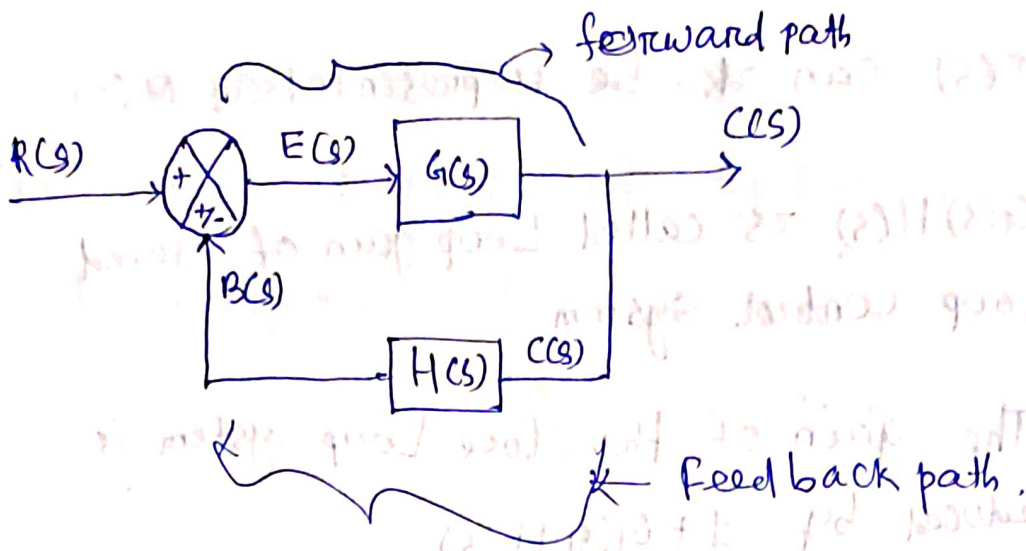 forward path
C(S)
R(S)
E(S)
G(S)
+
+-
B(S)
C(S)
H(S)
Feed back path.